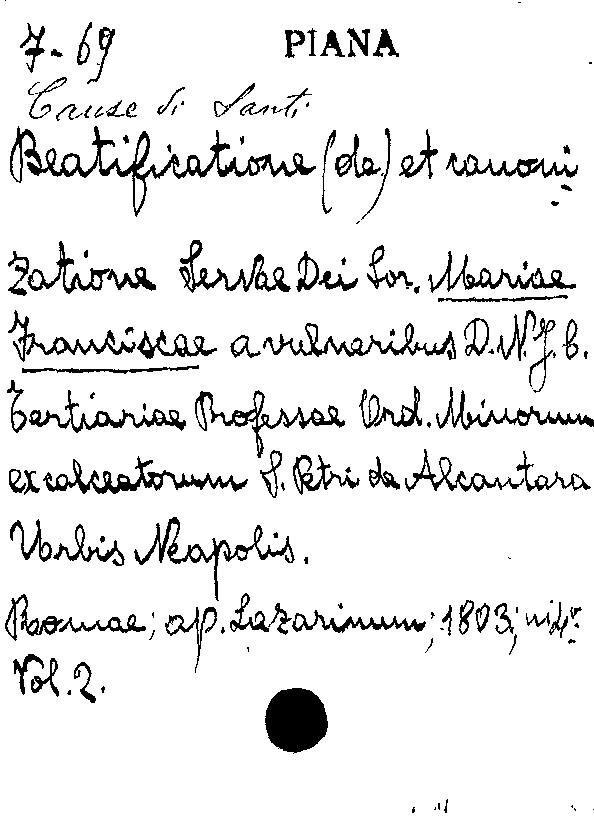 7-69 PIANA
Cause di Santi
Beatificatione (de) et canoni
zatione Servae Dei Sor. Mariae
Franciscae a vulneribus D.N.J.C.
Tertiariae Professae Ord. Minorum
excalceatorum S. Petri de Alcantara
Urbis Neapolis.
Romae; ap. Lazarinum; 1803; in 4°.
Vol. 2.